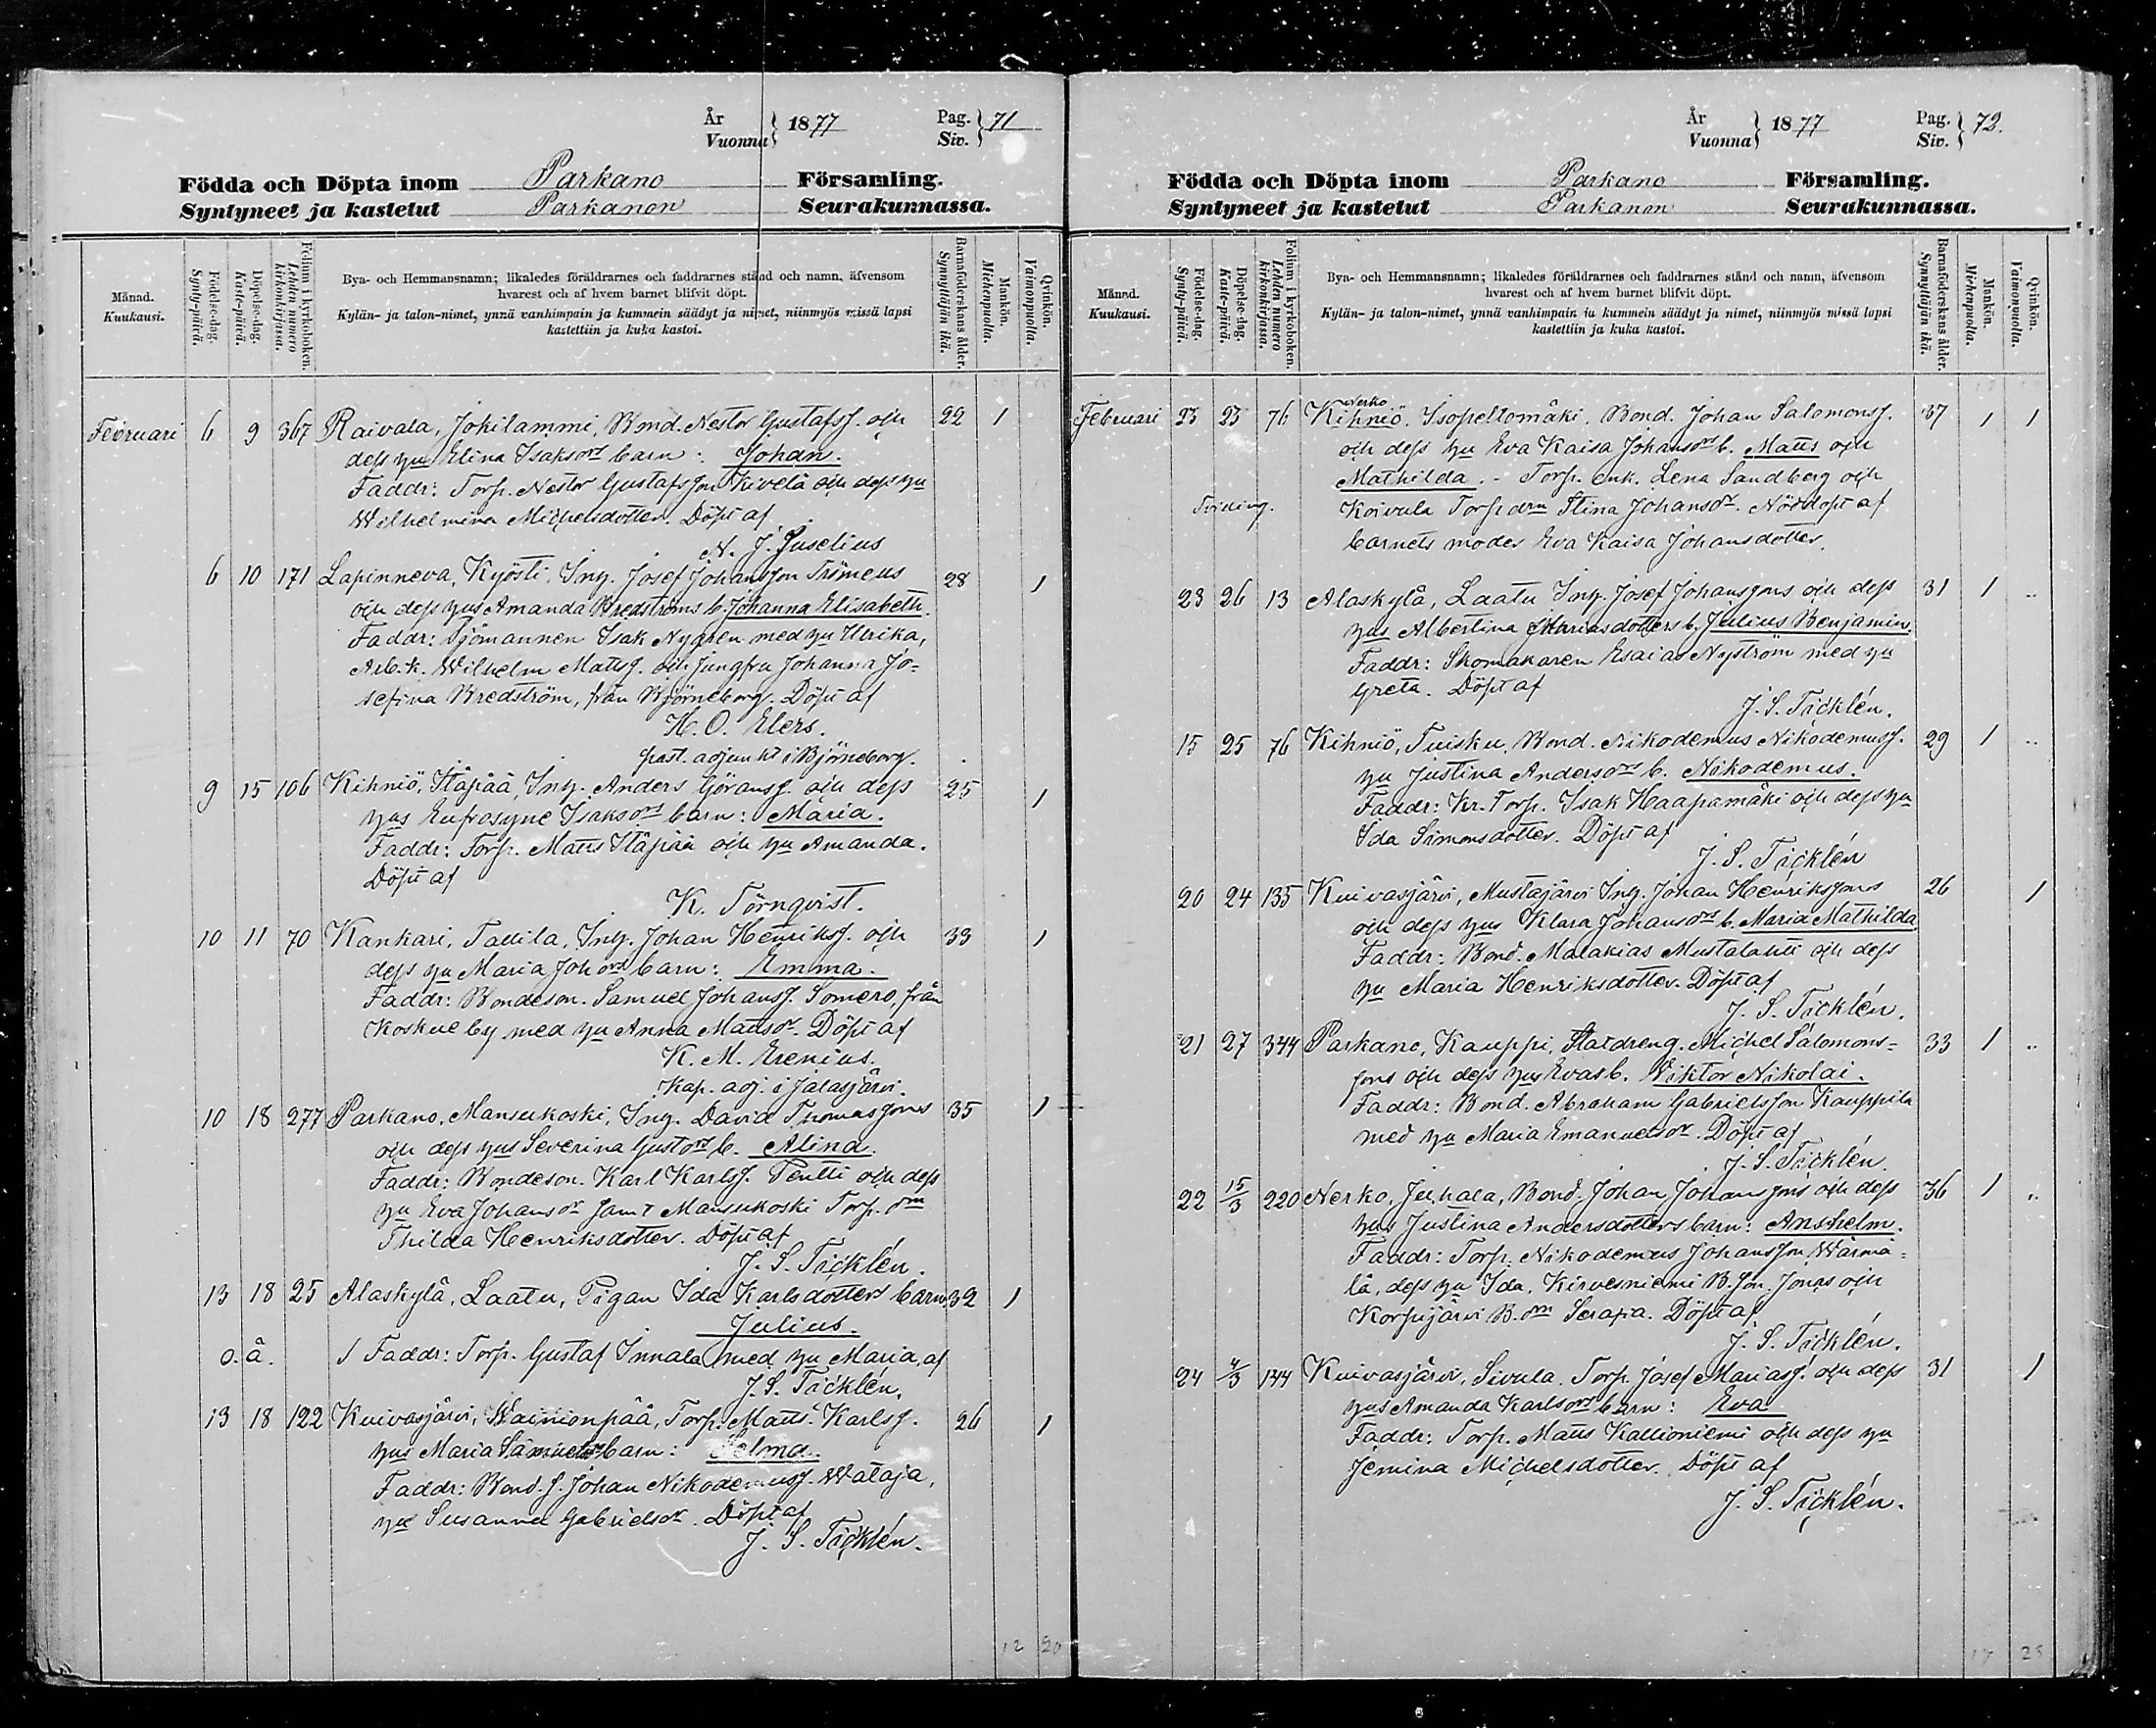 År
Vuonna } 1877
Pag.
Siv. } 71
Födda och Döpta inom Parkano Församling.
Syntyneet ja kastetut Parkanon Seurakunnassa.
Månad.
Kuukausi.
Födelse-dag.
Synty-päivä.
Döpelse-dag.
Kaste-päivä.
Folium i kyrkoboken.
Lehden numero kirkonkirjassa.
Bya- och Hemmansnamn; likaledes föräldrarnes och faddrarnes stånd och namn, äfvensom
hvarest och af hvem barnet blifvit döpt.
Kylän- ja talon-nimet, ynnä vanhimpain ja kummein säädyt ja nimet, niinmyös missä lapsi
kastettiin ja kuka kastoi.
Barnaföderskans ålder.
Synnyttäjän ikä.
Mankön.
Miehenpuolia.
Qvinkön.
Vaimonpuolia.
Februari 6 9 367 Raivala, Jokilammi, Bond. Nestor Gustafss. och 22 1
dess hu Elina Isaksdr barn: Johan.
Faddr: Torp. Nestor Gustafsson Kivelä och dess hu
Wilhelmina Michelsdotter. Döpt af
N. J. Juselius
6 10 171 Lapinneva, Kyösti, Inh. Josef Johansson Trömeus 28 1
och dess hus Amanda Bredströms b. Johanna Elisabeth.
Faddr: Sjömannen Isak Nygren med hu Ulrika,
Arb.k. Wilhelm Matts. och Jungfru Johanna Jo=
sefina Bredström, från Björneborg. Döpt af
H. O. Elers.
past. adjunkt i Björneborg.
9 15 106 Kihniö, Itäpää, Inh. Anders Göranss. och dess 25 1
hus Eufrosyne Isaksdr barn: Maria.
Faddr: Torp. Matts Itäpää och hu Amanda.
Döpt af
K. Törnqvist.
10 11 70 Kankari, Tallila, Inh. Johan Henrikss. och 33 1
dess hu Maria Johdrs barn: Emma.
Faddr: Bondeson. Samuel Johanss. Somero, från
Koskue by med hu Anna Mattsdr. Döpt af
K. M. Erenius.
Kap. adj. i Jalasjärvi.
10 18 277 Parkano, Mansukoski, Inh. David Thomassons 35 1
och dess hus Severina Gustdrs b. Alina.
Faddr: Bondeson. Karl Karlss. Pentti och dess
hu Eva Johansdr samt Mansukoski Torp. drn
Thilda Henriksdotter. Döpt af
J. S. Täcklén.
13 18 25 Alaskylä, Laatu, Pigan Ida Karlsdotters barn 32 1
Julius.
o. ä. / Faddr: Torp. Gustaf Innala med hu Maria, af
J. S. Täcklén.
13 18 122 Kuivasjärvi, Wainionpää, Torp. Matts Karlss. 26 1
hus Maria Samuelsdr barn: Selma.
Faddr: Bond. s. Johan Nikodemuss. Wataja,
hu Susanna Gabrielsdr. Döpt af
J. S. Täcklén.
12 20
År
Vuonna } 1877
Pag.
Siv. } 72.
Födda och Döpta inom Parkano Församling.
Syntyneet ja kastetut Parkanon Seurakunnassa.
Månad.
Kuukausi.
Födelse-dag.
Synty-päivä.
Döpelse-dag.
Kaste-päivä.
Folium i kyrkoboken.
Lehden numero kirkonkirjassa.
Bya- och Hemmansnamn; likaledes föräldrarnes och faddrarnes stånd och namn, äfvensom
hvarest och af hvem barnet blifvit döpt.
Kylän- ja talon-nimet, ynnä vanhimpain ja kummein säädyt ja nimet, niinmyös missä lapsi
kastettiin ja kuka kastoi.
Barnaföderskans ålder.
Synnyttäjän ikä.
Mankön.
Miehenpuolia.
Qvinkön.
Vaimonpuolia.
Nerko
Februari 23 23 76 Kihniö. Isopeltomäki. Bond. Johan Salomonss. 37 1 1
och dess hu Eva Kaisa Johansdrs b. Matts och
Mathilda. - Torp. enk. Lena Sandberg och
Tvilling. Koivula Torp drn Stina Johansdr. Nöddöpt af
barnets moder Eva Kaisa Johansdotter.
23 26 13 Alaskylä, Laatu Inh. Josef Johanssons och dess 31 1 ..
hus Albertina Mariasdotters b. Julius Benjamin.
Faddr: Skomakaren Esaias Nyström med hu
Greta. Döpt af
J. S. Täcklén.
15 25 76 Kihniö, Tuisku, Bond. Nikodemus Nikodemuss. 29 1 ..
hu Justina Andersdrs b. Nikodemus.
Faddr: Kr. Torp. Isak Haapamäki och dess hu
Ida Simonsdotter. Döpt af
J. S. Täcklén
20 24 135 Kuivasjärvi, Mustajärvi Inh. Johan Henrikssons 26 1
och dess hus Klara Johansdrs b. Maria Mathilda
Faddr: Bond. Malakias Mustalahti och dess
hu Maria Henriksdotter. Döpt af
J. S. Täcklén.
21 27 344 Parkano, Kauppi, Statdreng. Michel Salomons= 33 1 ..
sons och dess hus Evas b. Viktor Nikolai.
Faddr: Bond. Abraham Gabrielsson Kauppila
med hu Maria Emanuelsdr. Döpt af
J. S. Täcklén.
22 15/3 220 Nerko, Juhala, Bond. Johan Johanssons och dess 36 1 ..
hus Justina Andersdotters barn: Anshelm.
Faddr: Torp. Nikodemus Johansson Wärmä=
lä, dess hu Ida, Kirvesniemi B. son Jonas och
Korpijärvi B. drn Serafia. Döpt af
J. S. Täcklén.
24 4/3 144 Kuivasjärvi, Sivula. Torp. Josef Mariass. och dess 31 1
hus Amanda Karlsdrs barn: Eva
Faddr: Torp. Matts Kallioniemi och dess hu
Jemina Michelsdotter. Döpt af
J. S. Täcklén.
17 23